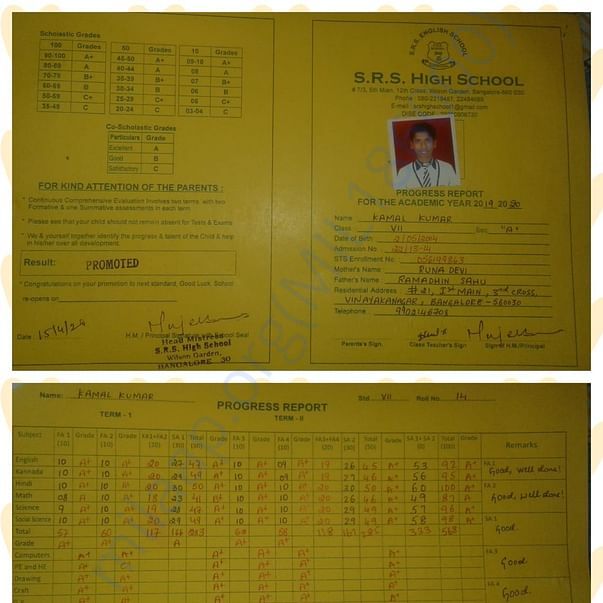 Scholastic Grades
100 Grades 50 Grades 10 Grades
90-100 A+ 45-50 A+ 09-10 A+
80-89 A 40-44 A 08 A
70-79 B+ 35-39 B+ 07 B+
60-69 B 30-34 B 06 B
50-59 C+ 25-29 C+ 05 C+
35-49 C 20-24 C 03-04 C
Co-Scholastic Grades
Particulars Grade
Excellent A
Good B
Satisfactory C
FOR KIND ATTENTION OF THE PARENTS :
Continuous Comprehensive Evaluation Involves two terms, with two
Formative & one Summative assessments in each term
Please see that your child should not remain absent for Tests & Exams
We & yourself together identify the progress & talent of the Child & help
in his/her over all development.
Result: PROMOTED
* Congratulations on your promotion to next standard, Good Luck, School
re-opens on
Date 15/4/20
H.M. / Principal School Seal
Head Mistress
S.R.S. High School
Wilson Garden,
BANGALORE 30
S.R.S. ENGLISH SCHOOL
S.R.S. HIGH SCHOOL
# 7/3, 5th Main, 12th Cross, Wilson Garden, Bangalore-560 030
E-mail : srshighschool1@gmail.com
DISE CODE
PROGRESS REPORT
FOR THE ACADEMIC YEAR 2019 2020
Name KAMAL KUMAR
Class VII Sec "A"
Date of Birth 2/05/2004
Admission No.
STS Enrollment No.
Mother's Name RUNA DEVI
Father's Name RAMADHIN SAHU
Residential Address #21, Ist MAIN, 3rd CROSS,
VINAYAKANAGAR, BANGALORE-560030
Telephone 9902146703
Parents's Sign. Class Teacher's Sign Sign of H.M./Principal
Name: KAMAL KUMAR Std VII Roll No. 14
PROGRESS REPORT
TERM - 1 TERM - II
Subject FA 1 (10) Grade FA 2 (10) Grade FA1+FA2 (20) SA 1 (30) Total (50) Grade FA 3 (10) Grade FA 4 (10) Grade FA3+FA4 (20) SA 2 (30) Total (50) Grade SA 1+SA 2 (60) Total (100) Grade Remarks
English 10 A+ 10 A+ 20 27 47 A+ 10 A+ 09 A+ 19 26 45 A+ 53 92 A+
FA 1 Good, well done!
Kannada 10 A+ 10 A+ 20 29 49 A+ 10 A+ 09 A+ 19 27 46 A+ 56 95 A+
Hindi 10 A+ 10 A+ 20 30 50 A+ 10 A+ 10 A+ 20 30 50 A+ 60 100 A+
FA 2 Good, well done!
Math 08 A 10 A+ 18 23 41 A+ 10 A+ 10 A+ 20 26 46 A+ 49 87 A
Science 9 A+ 10 A+ 19 28 47 A+ 10 A+ 10 A+ 20 29 49 A+ 57 96 A+
Social Science 10 A+ 10 A+ 20 29 49 A+ 10 A+ 10 A+ 20 29 49 A+ 58 98 A+
SA 1 Good
Total 57 60 117 60 58 118 333 568
Grade A+ A+ A A+ A+
Computers A+ A+ A+ A+
FA 3 Good
PE and HE A+ A+ A+ A+
Drawing A+ A+ A+ A+
Craft A+ A+ A+ A+
FA 4 Good.